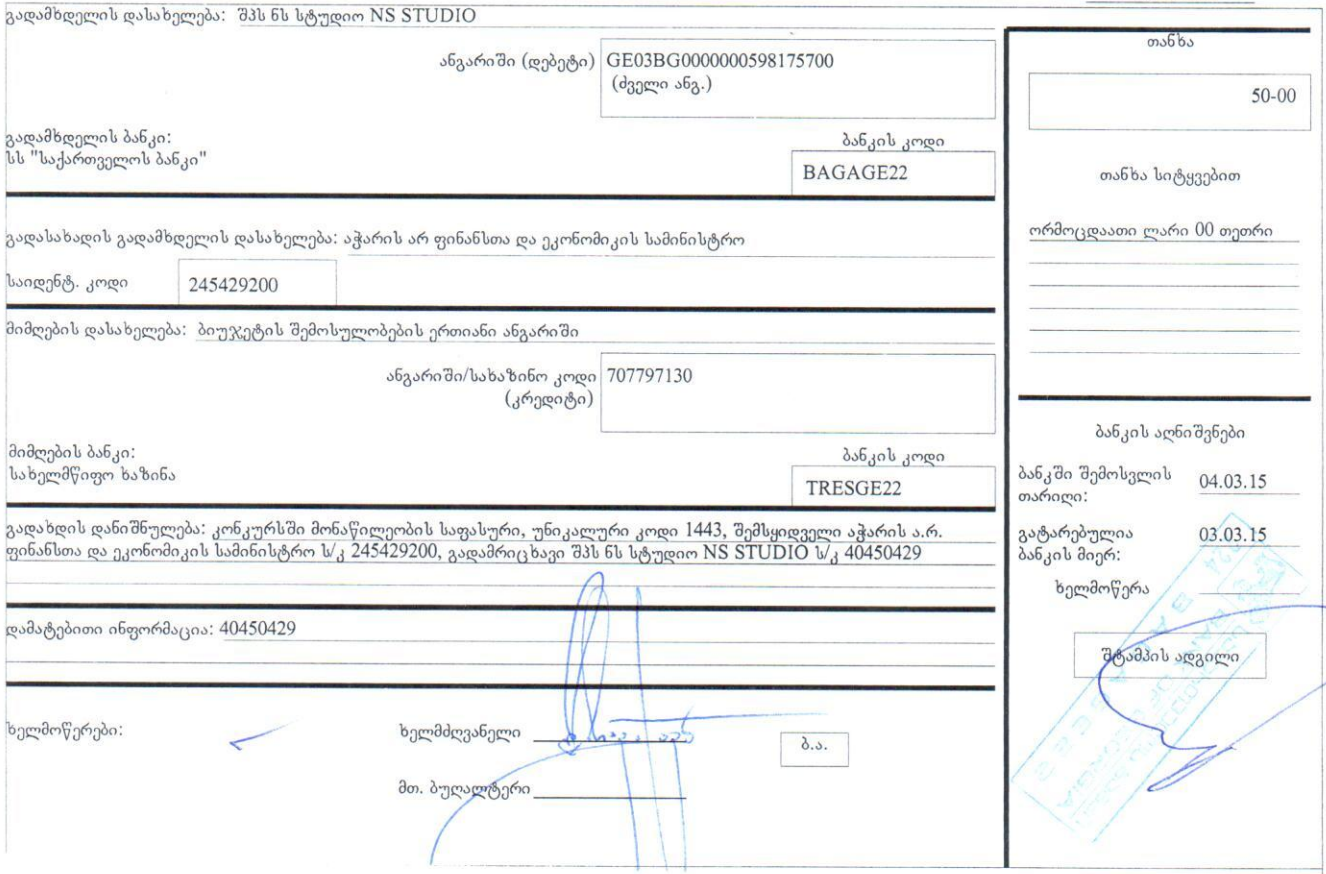 გადამხდელის დასახელება: შპს ნს სტუდიო NS STUDIO
ანგარიში (დებეტი) GE03BG0000000598175700
(ძველი ანგ.)
გადამხდელის ბანკი:
სს "საქართველოს ბანკი"
ბანკის კოდი
BAGAGE22
გადასახადის გადამხდელის დასახელება: აჭარის არ ფინანსთა და ეკონომიკის სამინისტრო
საიდენტ. კოდი 245429200
მიმღების დასახელება: ბიუჯეტის შემოსულობების ერთიანი ანგარიში
ანგარიში/სახაზინო კოდი 707797130
(კრედიტი)
მიმღების ბანკი:
სახელმწიფო ხაზინა
ბანკის კოდი
TRESGE22
გადახდის დანიშნულება: კონკურსში მონაწილეობის საფასური, უნიკალური კოდი 1443, შემსყიდველი აჭარის ა.რ.
ფინანსთა და ეკონომიკის სამინისტრო ს/კ 245429200, გადამრიცხავი შპს ნს სტუდიო NS STUDIO ს/კ 40450429
დამატებითი ინფორმაცია: 40450429
ხელმოწერები:
ხელმძღვანელი
ბ.ა.
მთ. ბუღალტერი
თანხა
50-00
თანხა სიტყვებით
ორმოცდაათი ლარი 00 თეთრი
ბანკის აღნიშვნები
ბანკში შემოსვლის
თარიღი: 04.03.15
გატარებულია
ბანკის მიერ: 03.03.15
ხელმოწერა
შტამპის ადგილი